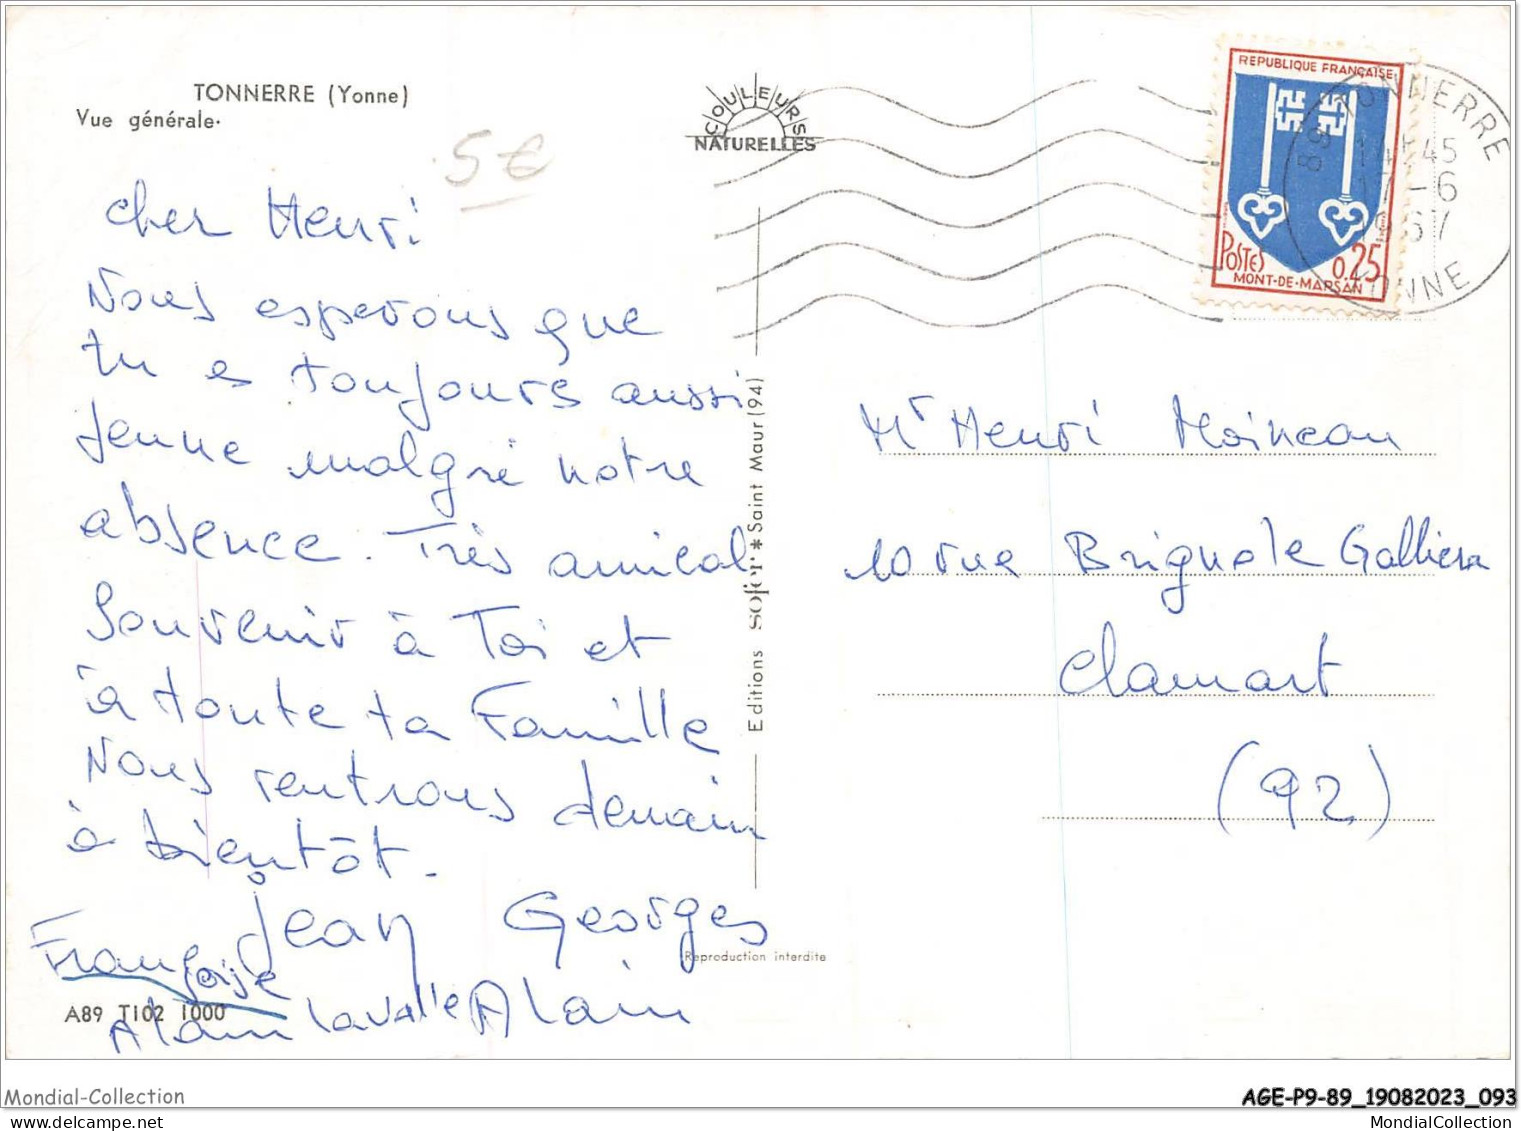 TONNERRE (Yonne)
Vue générale.
5 €
COULEURS
NATURELLES
REPUBLIQUE FRANÇAISE
POSTES 0.25
MONT-DE-MARSAN
89 TONNERRE
14H45
17-6
1967
YONNE
cher Henri
Nous esperons que
tu es toujours aussi
jeune malgré notre
absence. Très amical
Souvenir à Toi et
à toute ta Famille
Nous rentrons demain
à bientôt.
Jean Georges
Françoise
Alain Lavalle Alain
Mr Henri Moineau
10 rue Brignole Galliera
Clamart
(92)
Editions SOFER * Saint Maur (94)
Reproduction interdite
A89 T102 1000
Mondial-Collection
AGE-P9-89_19082023_093
MondialCollection